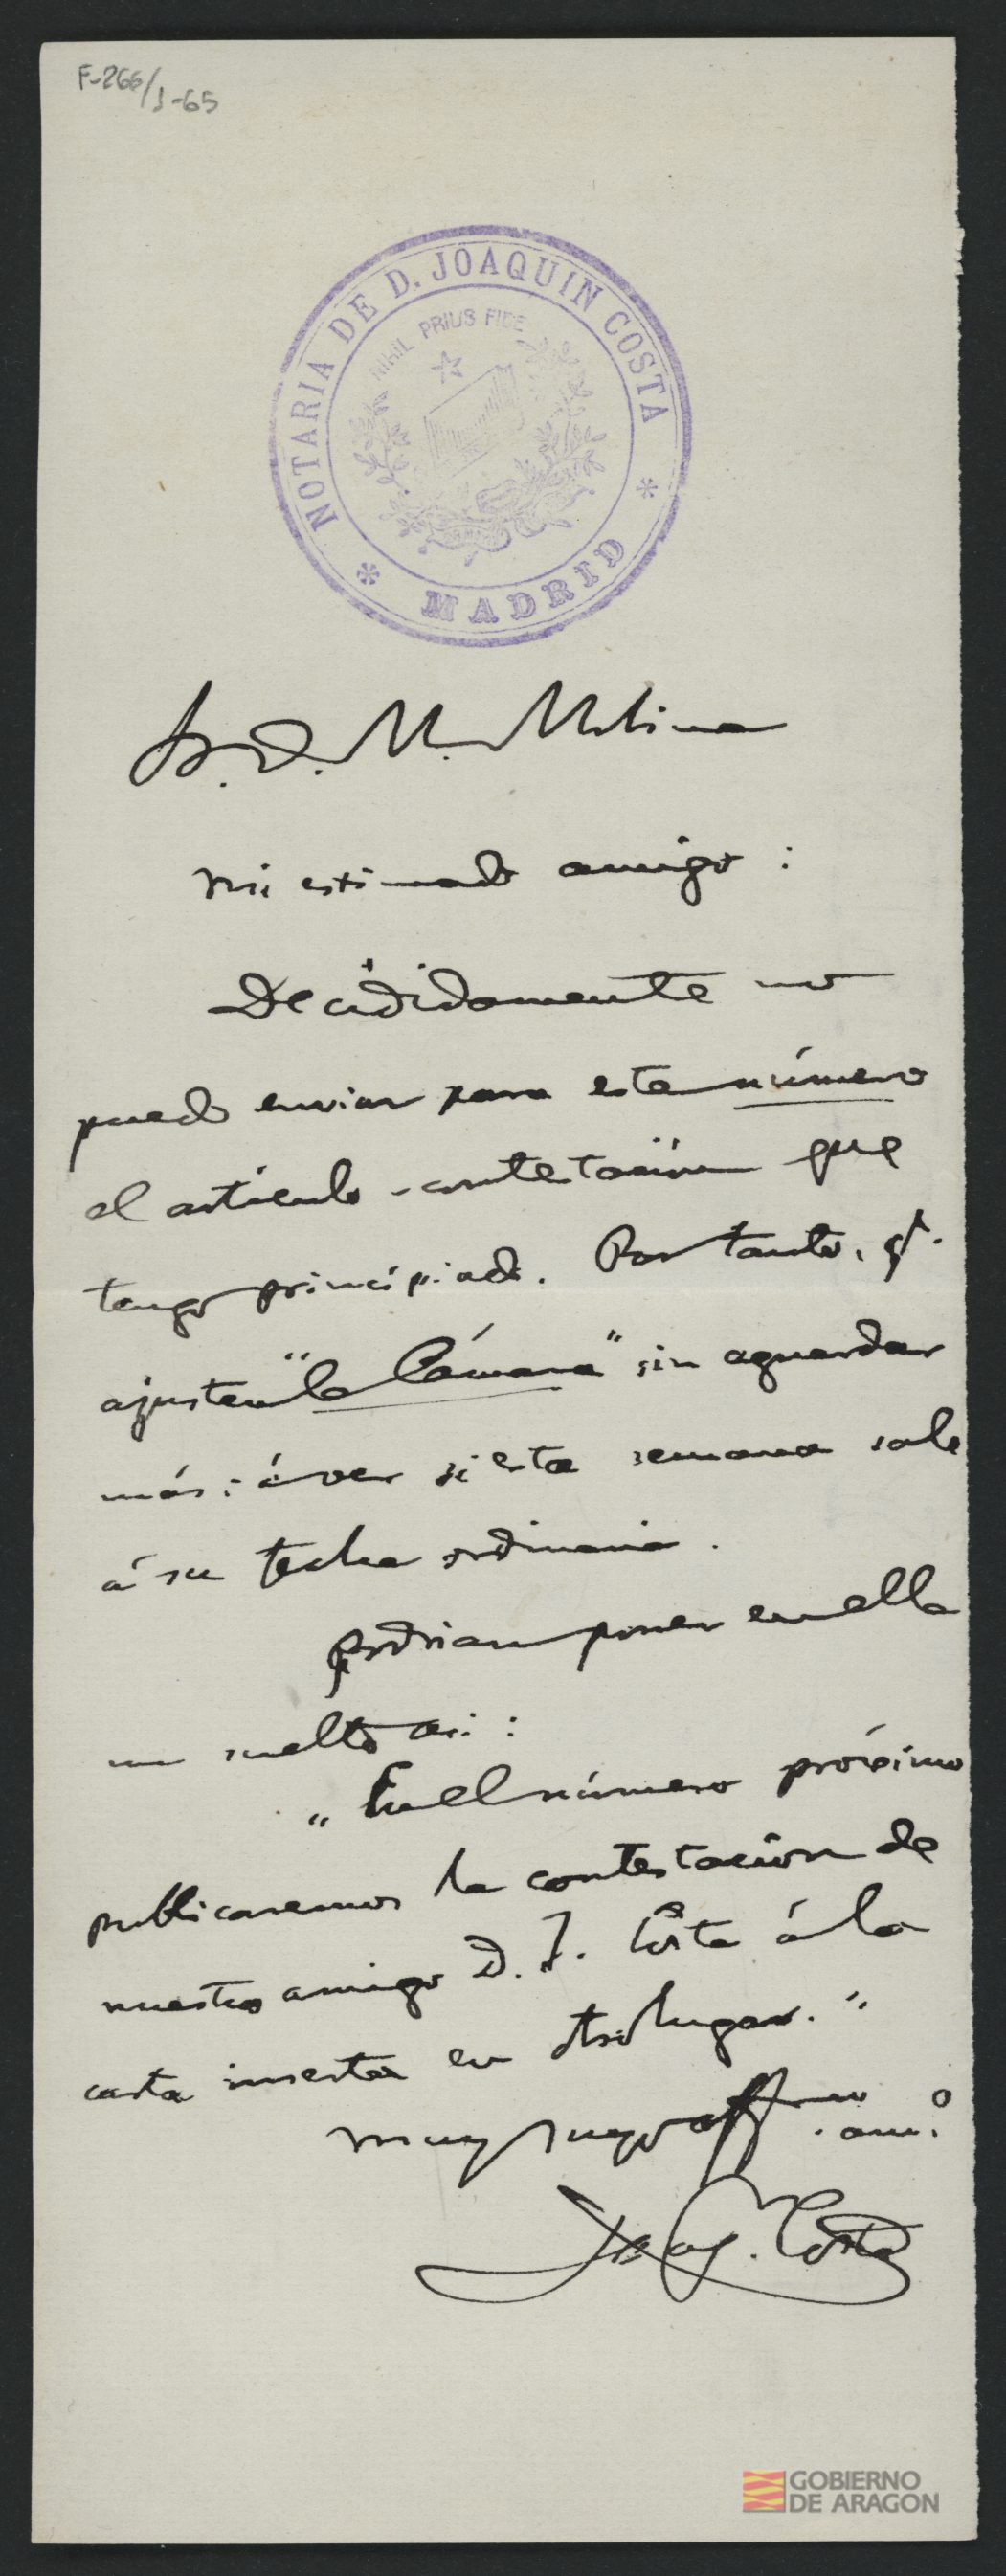 F-266/1-65
NOTARIA DE D. JOAQUIN COSTA
NIHIL PRIUS FIDE
* MADRID *
Sr. D. M. Molina
Mi estimado amigo :
Decididamente no
puedo enviar para este número
el artículo-contestación que
tengo principiado. Por tanto, q.
ajusten "la Cámara" sin aguardar
más : á ver si esta semana sale
á su fecha ordinaria.
Podrian poner en ella
un suelto asi :
"En el número próximo
publicaremos la contestación de
nuestro amigo D. J. Costa á la
carta inserta en otro lugar."
Muy suyo affmo. am.º
Joaq. Costa
GOBIERNO
DE ARAGON